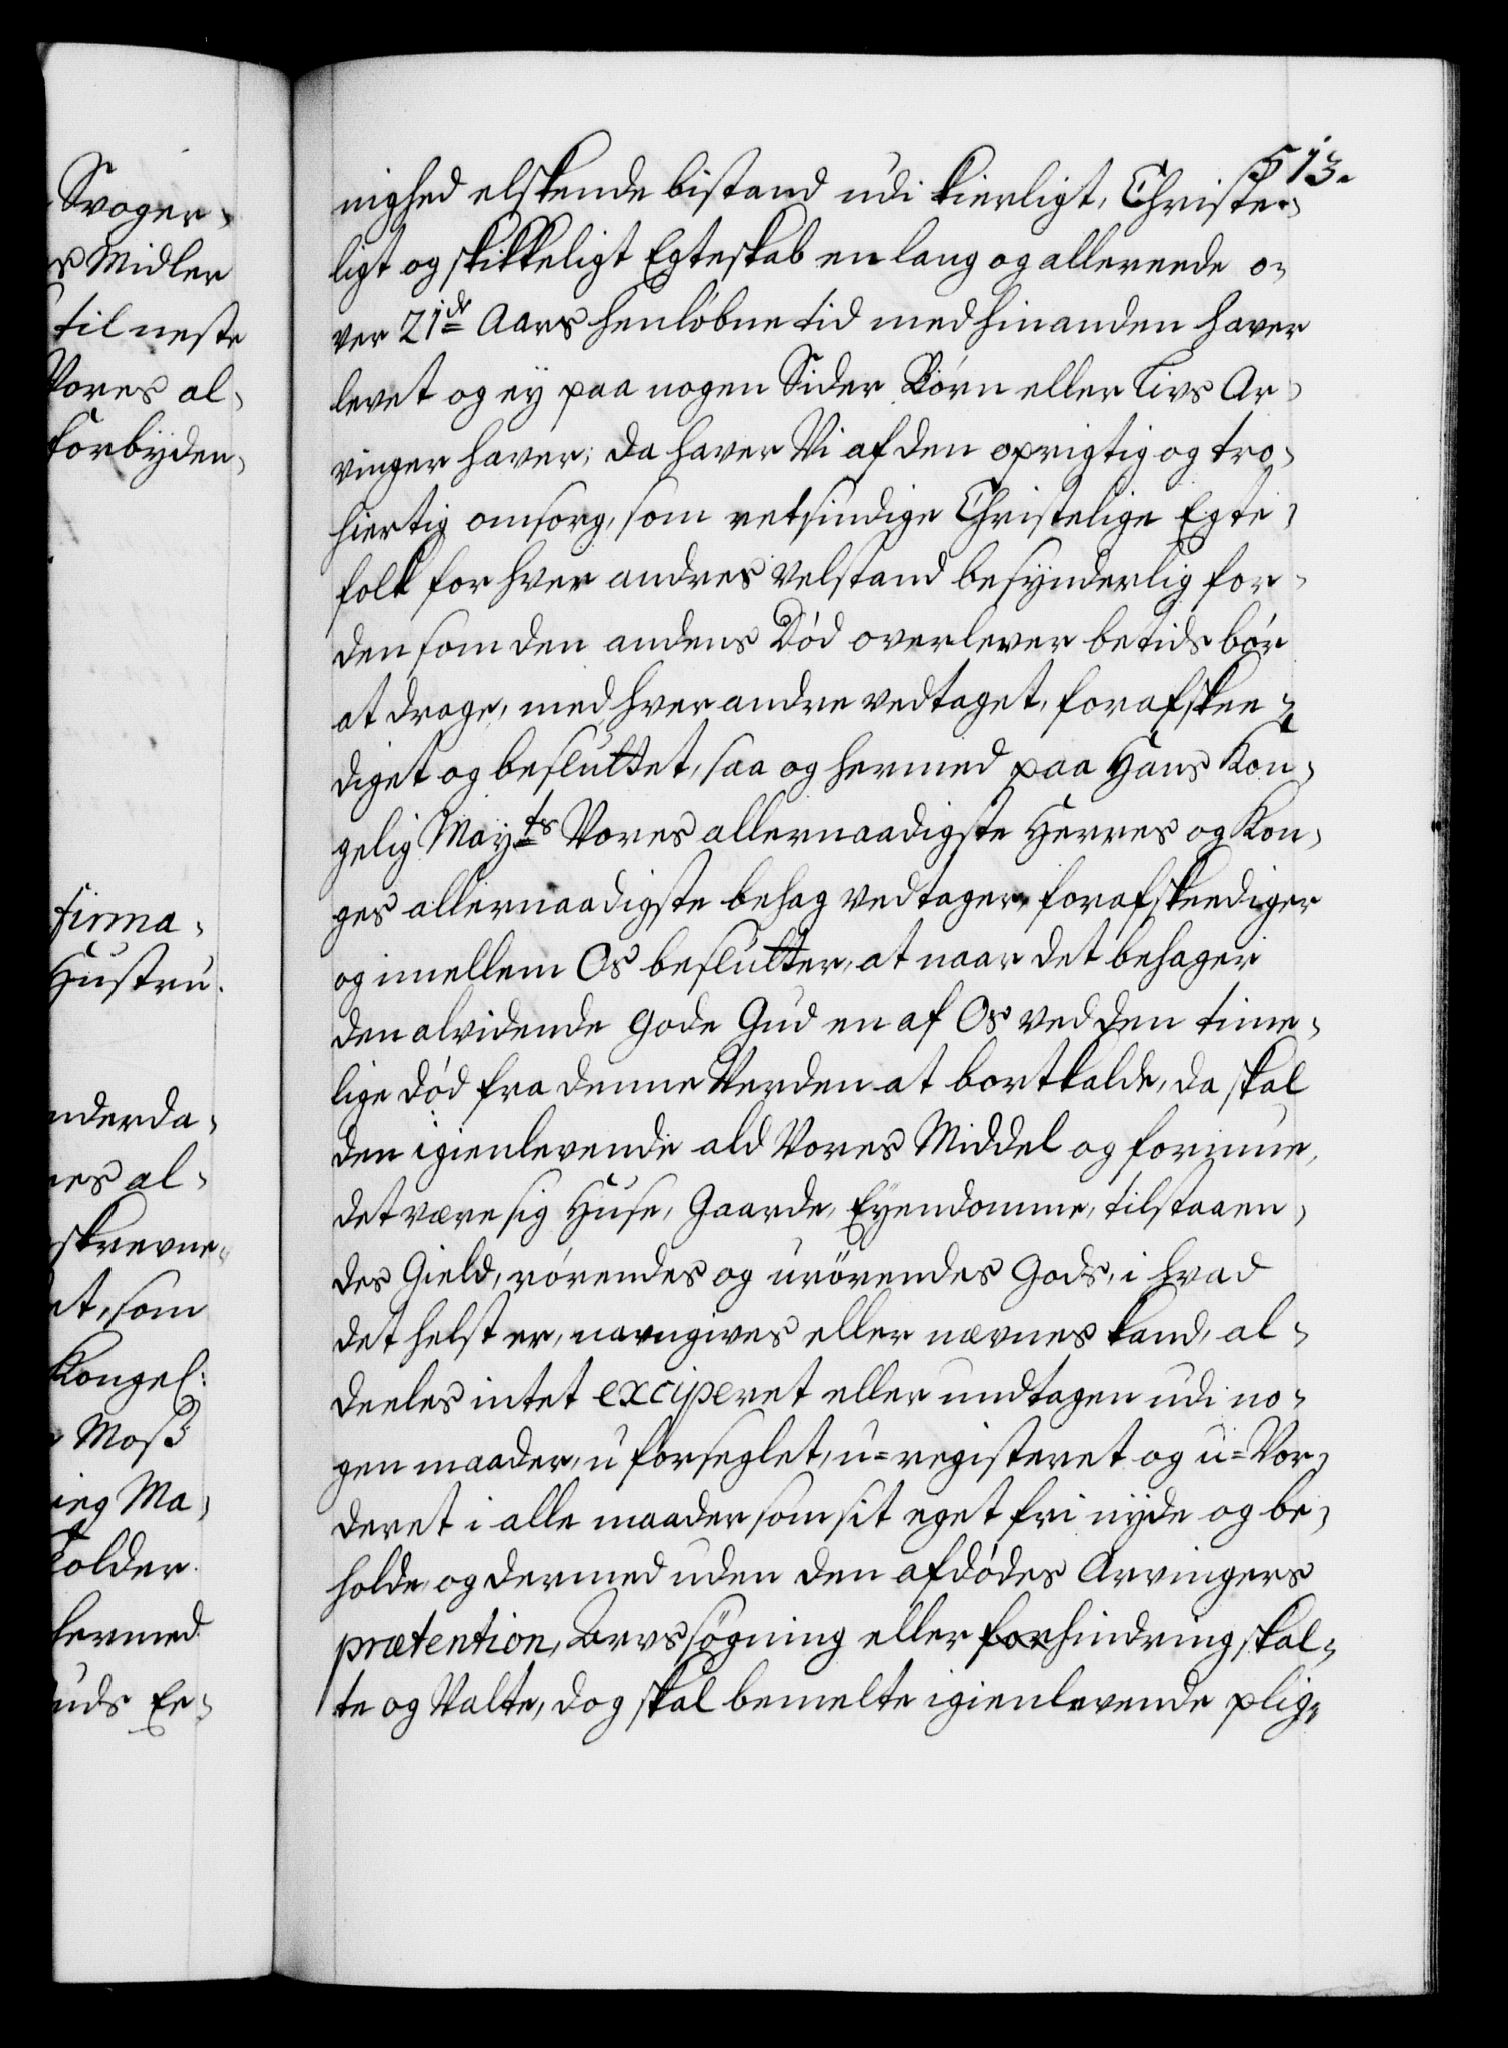 Svoger-
s Midler
til neste
Vores al-
forbyden-
firma-
Hustru.
nderda-
nes al-
skrevne
et, som
Kongel:
Moss
ieg Ma-
Tolder
hermed
uds Ee-
513.
nighed elskende bistand udi kierligt, Christe-
ligt og skikkeligt Egteskab en lang og allereede o-
ver 21de Aars henløbne tid med hinanden haver
levet og ey paa nogen Sider Børn eller Livs Ar-
vinger haver; da haver Vi af den oprigtig og tro-
hiertig omsorg, som retsindige Christelige Egte-
folk for hver andres velstand besynderlig for
den som den andens Død overlever betids bør
at drage, med hver andre vedtaget, forafskee-
diget og besluttet, saa og hermed paa Hans Kon-
gelig Mayts Vores allernaadigste Herres og Kon-
ges allernaadigste behag vedtager, forafskeediger
og imellem Os beslutter, at naar det behager
den alvidende gode Gud en af Os ved den time-
lige død fra denne Verden at bortkalde, da skal
den igienlevende ald Vores Middel og formue,
det være sig Huse, Gaarde, Eyendomme, tilstaaen-
des Gield, rørendes og urørendes Gods, i hvad
det helst er, navngives eller nævnes kand, al-
deeles intet exciperet eller undtagen udi no-
gen maader, uforseglet, u=registeret og u=Vor-
deret i alle maader som sit eget fri nyde og be-
holde, og dermed uden den afdødes Arvingers
prætention, Arvs søgning eller forhindring skal-
te og Valte, dog skal bemelte igienlevende plig-